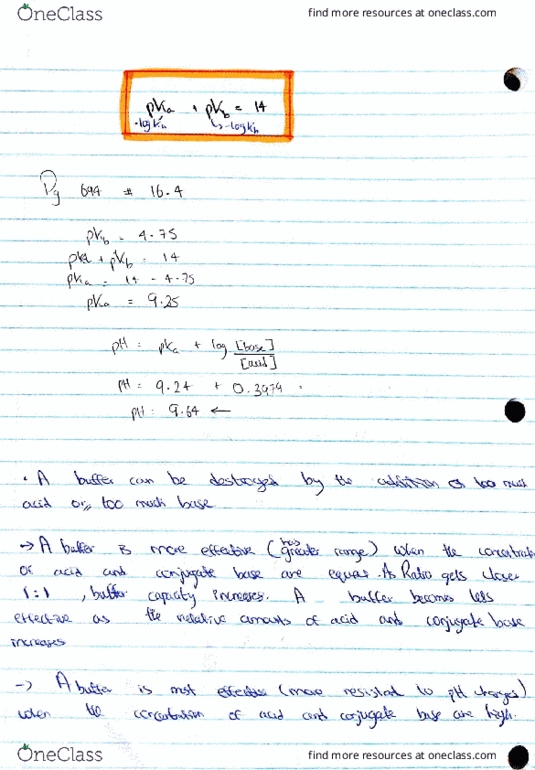 OneClass
find more resources at oneclass.com
pKa + pKb = 14
-logKa ↳ -logKb
Pg 694 # 16.4
pKb = 4.75
pKa + pKb = 14
pKa = 14 - 4.75
pKa = 9.25
pH = pKa + log [base]
[acid]
pH = 9.24 + 0.3979
pH = 9.64 ←
• A buffer can be destroyed by the addition of too much
acid or too much base
→ A buffer is more effective (has greater range) when the concentrat
of acid and conjugate base are equal. As Ratio gets closer
1:1, buffer capacity increases. A buffer becomes less
effective as the relative amounts of acid and conjugate base
increases
→ A buffer is most effective (more resistant to pH changes)
when the concentration of acid and conjugate base are high.
OneClass
find more resources at oneclass.com